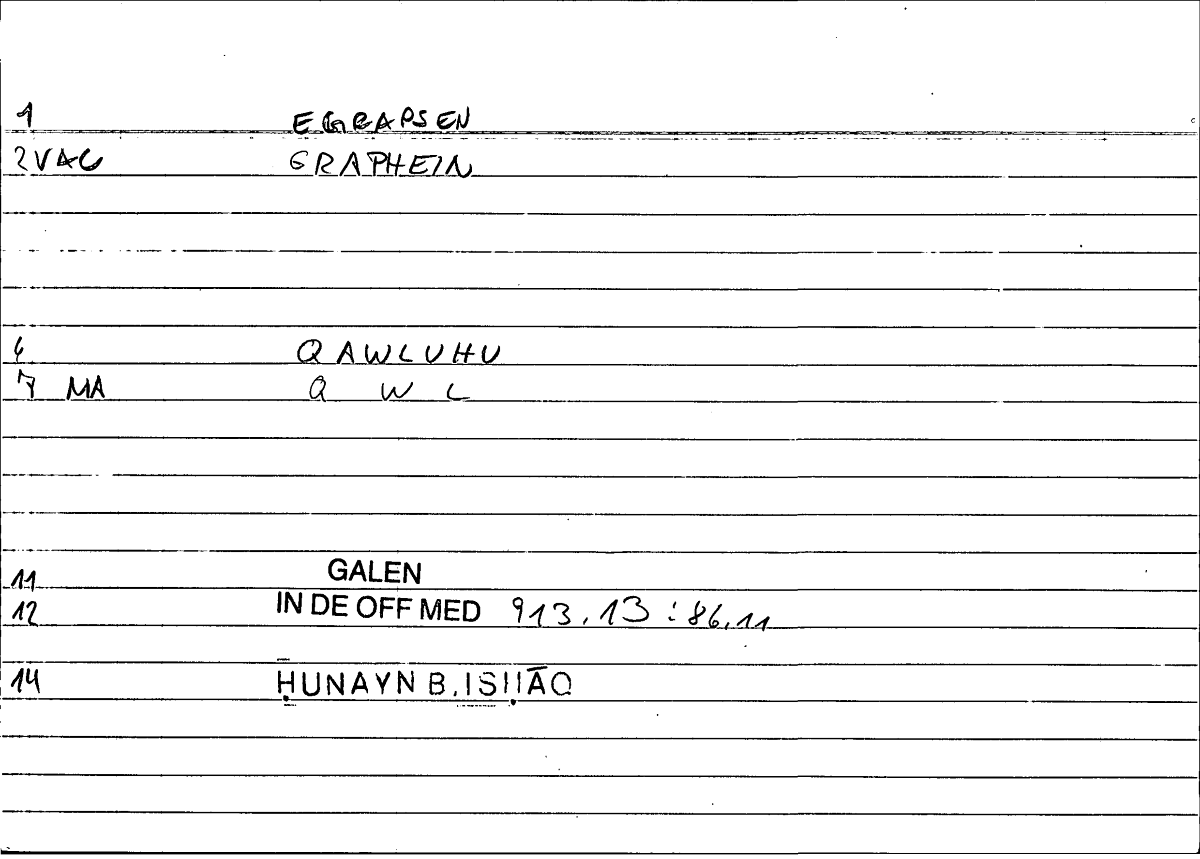 1 EGRAPSEN
2 VAC GRAPHEIN
6 QAWLUHU
7 MA Q W L
11 GALEN
12 IN DE OFF MED 913.13:86.11
14 ḤUNAYN B. ISḤĀQ